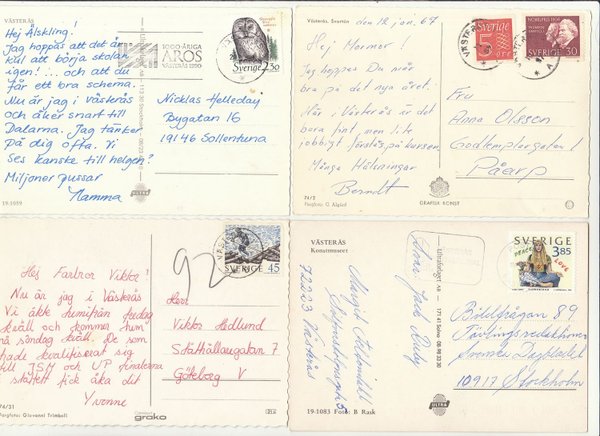 VÄSTERÅS
Hej Älskling!
Jag hoppas att det är
kul att börja skolan
igen! ... och att du
får ett bra schema.
Nu är jag i Västerås
och åker snart till
Dalarna. Jag tänker
på dig ofta. Vi
ses kanske till helgen?
Miljoner pussar
Mamma
19.1059
1000-ÅRIGA
AROS
VÄSTERÅS 1990
Sverige 2.30
Nicklas Helleday
Bygatan 16
19146 Sollentuna
Västerås, Svartån
den 12 jan. 67
Hej Mormor!
Jag hoppas Du mår
bra på det nya året.
Här i Västerås är det
bara fint men lite
jobbigt förstås på kursen.
Många Hälsningar
Berndt
74/2
GRAFISK KONST
SVERIGE
5
NOBELPRIS 1906
SVERIGE 30
Fru
Anna Olsson
Godtemplargatan 1
Påarp
Hej Farbror Viktor!
Nu är jag i Västerås
Vi åkte hemifrån fredag
kväll och kommer hem
på söndag kväll. De som
hade kvalificerat sig
till JSM och UP finalerna
i stafett fick åka dit
Yvonne
74/31
Fargfoto: Giovanni Trimboli
grako
92
SVERIGE 45
Herr
Viktor Hedlund
Stätthållaregatan 7
Göteborg V
VÄSTERÅS
Konstmuseet
Margit
72223 Västerås
19.1083 Foto: B Rask
Ultraförlaget AB
171 41 Solna
ULTRA
SVERIGE
3.85
PEACE
LOVE
Bildfrågan 89
Tävlingsredaktionen
Svenska Dagbladet
10917 Stockholm